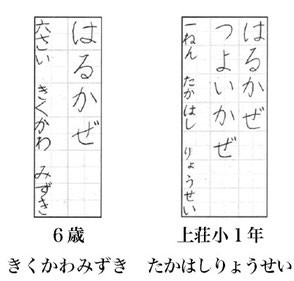 はるかぜ
つよいかぜ
一ねん たかはし りょうせい
上荘小1年
たかはしりょうせい
はるかぜ
六さい きくかわ みずき
6歳
きくかわみずき